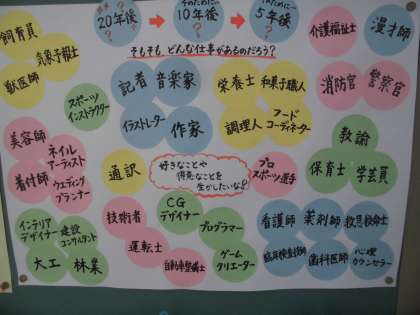 20年後
そのために…
10年後
そのために…
5年後
?
?
?
?
そもそも、どんな仕事があるのだろう?
飼育員
気象予報士
獣医師
スポーツ
インストラクター
記者
音楽家
イラストレーター
作家
栄養士
和菓子職人
調理人
フード
コーディネーター
介護福祉士
漫才師
消防官
警察官
美容師
ネイル
アーティスト
着付師
ウエディング
プランナー
通訳
好きなことや
得意なことを
生かしたいな?
プロ
スポーツ選手
教諭
保育士
学芸員
インテリア
デザイナー
建設
コンサルタント
大工
林業
技術者
運転士
自動車整備士
CG
デザイナー
プログラマー
ゲーム
クリエーター
看護師
薬剤師
救急救命士
臨床検査技師
歯科医師
心理
カウンセラー